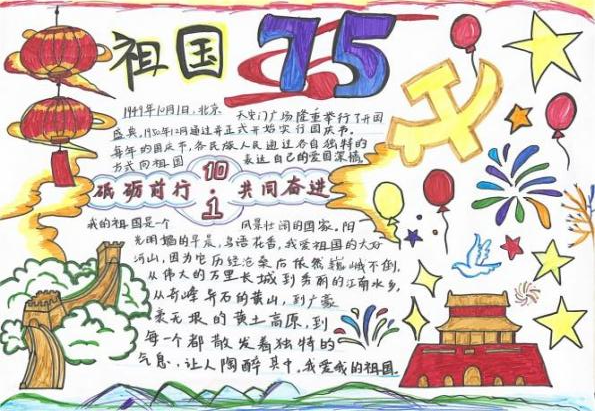 祖国 75
1949年10月1日,北京 天安门广场隆重举行了开国
盛典,1950年12月通过并正式开始实行国庆节。
每年的国庆节,各民族人民通过各自独特的
方式向祖国 表达自己的爱国深情。
砥砺前行 10·1 共同奋进
我的祖国是一个 风景壮阔的国家,阳
光明媚的早晨,鸟语花香,我爱祖国的大好
河山,因为它历经沧桑后依然巍峨不倒,
从伟大的万里长城到秀丽的江南水乡,
从奇峰异石的黄山,到广袤
无垠的黄土高原,到
每一个都散发着独特的
气息,让人陶醉其中,我爱我的祖国.